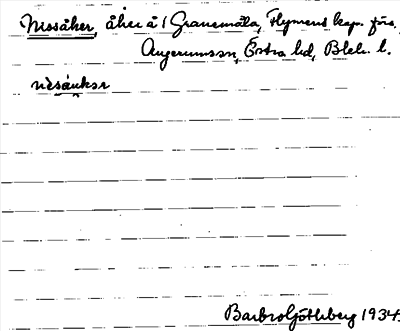 Nissåker, åker å 1 Granemåla, Flymens kap. förs.,
Augerumssn, Östra hd, Blek. l.
Barbro Götlsberg 1934.